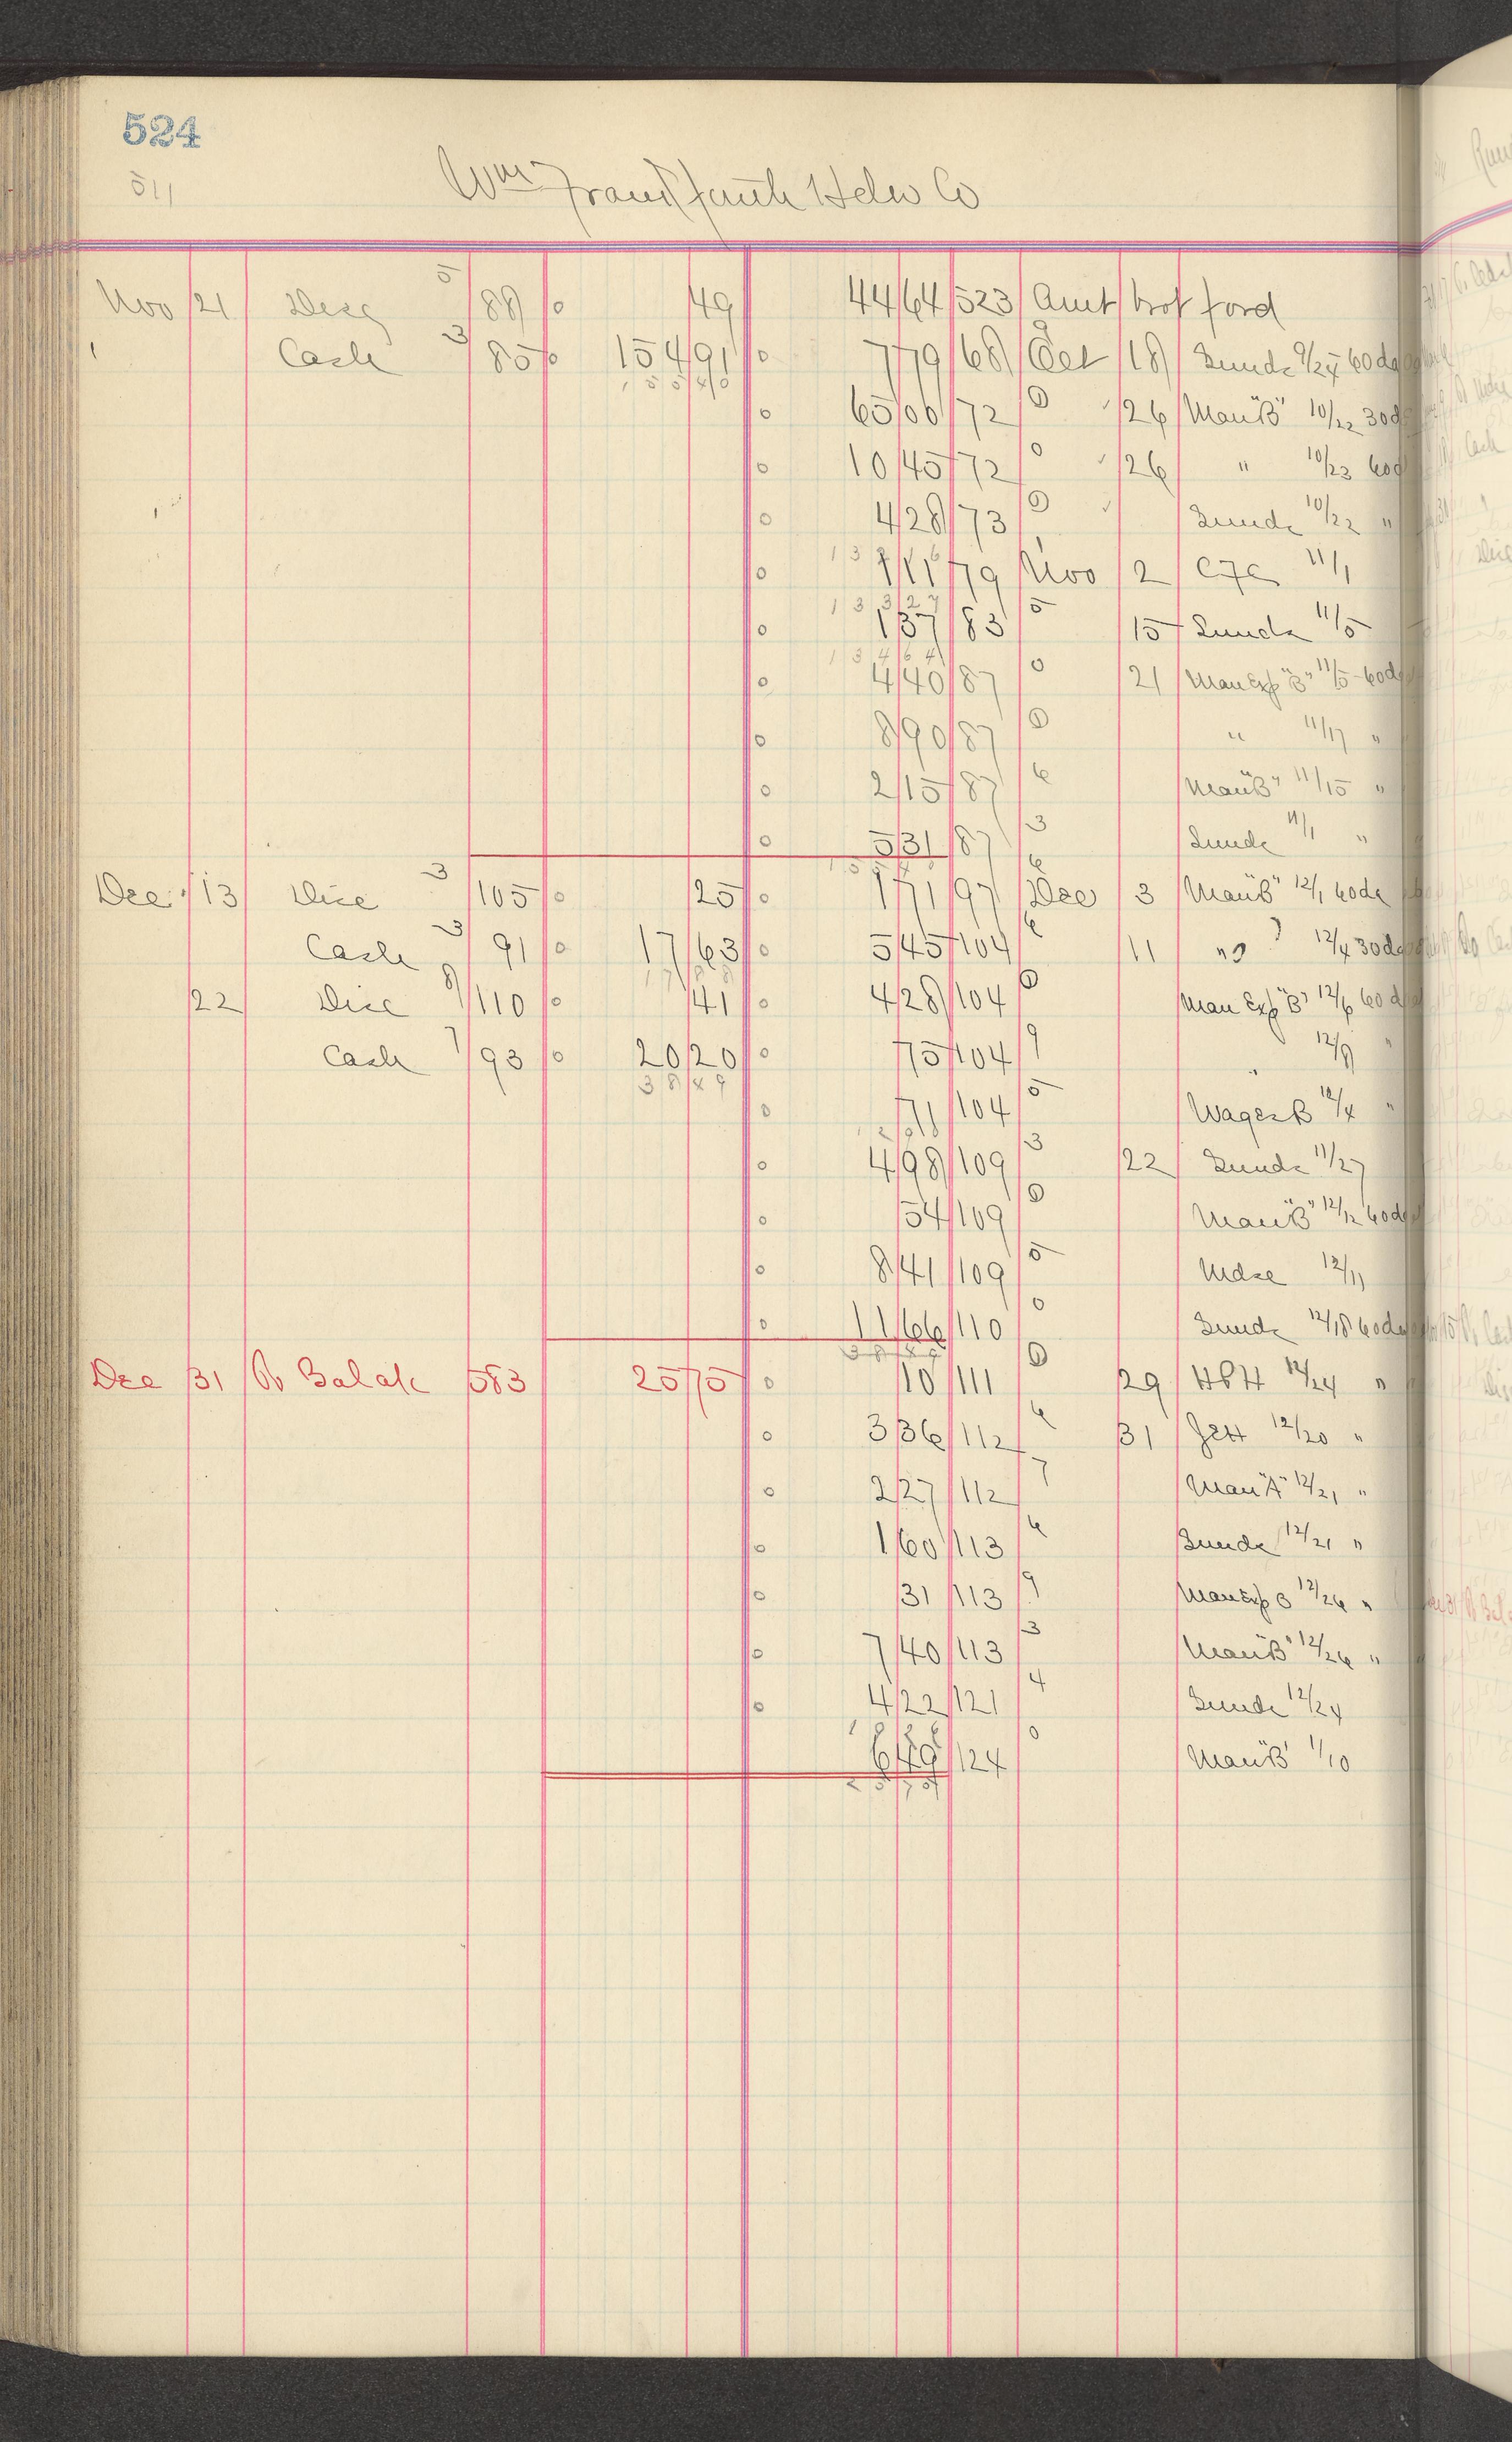 524
511
Wm Frankfurth Hdw Co
5
Nov 21 Disc 88 49 44 64 523 Amt brot ford
3
Cash 85 154 91 7 79 68 Oct 18 Sunds 9/24 60 ds
155 40
65 06 72 0 26 Man "B" 10/22 30 d
10 45 72 0 26 " 10/23 60 d
4 28 73 0 Sunds 10/22 "
79 Nov 2 11/1
133 27
1 37 83 5 15 Sunds 11/5
134 64
4 40 87 0 21 Man Exp "B" 11/5 60 d
8 90 87 0 " 11/17 "
2 15 87 6 Man "B" 11/15 "
5 31 87 3 Sunds 11/1 "
3 6
Dec 13 Disc 105 25 1 71 97 Dec 3 Man "B" 12/1 60 ds
3 6
Cash 91 17 63 5 45 104 11 " 12/4 30 ds
17 88
8
22 Disc 110 41 4 28 104 0 Man Exp "B" 12/6 60 d
1
Cash 93 20 20 75 104 9 " 12/9 "
38 49
71 104 5 Wages B 12/4 "
4 98 109 3 22 Sunds 11/27
54 109 0 Man "B" 12/12 60 ds
8 41 109 5 Mdse 12/11
11 66 110 0 Sunds 12/18 60 ds
38 49
Dec 31 To Balance 583 25 75 10 111 0 29 H&H 12/24 "
3 36 112 6 31 12/20 "
2 27 112 7 Man "A" 12/21 "
1 60 113 6 Sunds 12/21 "
31 113 9 Man Exp B 12/26 "
7 40 113 3 Man "B" 12/26 "
4 22 121 4 Sunds 12/24
6 49 124 0 Man "B" 1/10
25 75